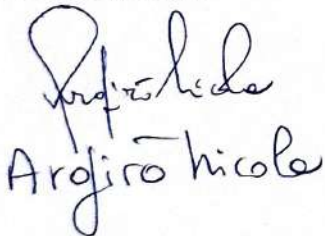 Argirò Nicola
Argirò Nicola